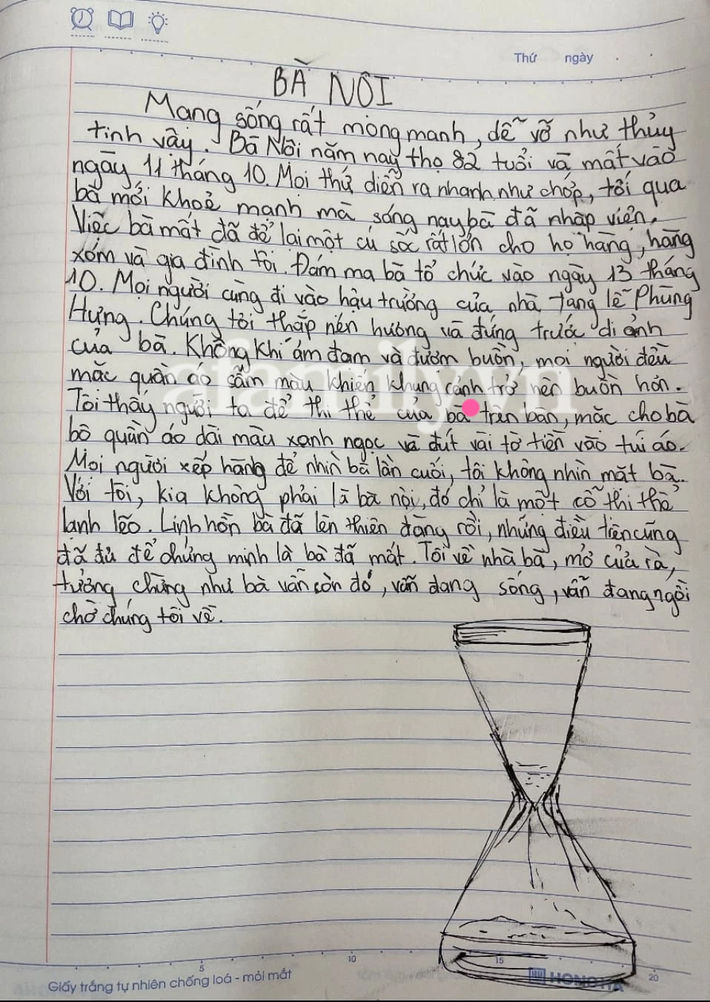 Thứ ngày . .
BÀ NỘI
Mạng sống rất mỏng manh, dễ vỡ như thủy
tinh vậy. Bà Nội năm nay thọ 82 tuổi và mất vào
ngày 11 tháng 10. Mọi thứ diễn ra nhanh như chớp, tối qua
bà mới khoẻ mạnh mà sáng nay bà đã nhập viện.
Việc bà mất đã để lại một cú sốc rất lớn cho họ hàng, hàng
xóm và gia đình tôi. Đám ma bà tổ chức vào ngày 13 tháng
10. Mọi người cùng đi vào hậu trường của nhà tang lễ Phùng
Hưng. Chúng tôi thắp nén hương và đứng trước di ảnh
của bà. Không khí ảm đạm và đượm buồn, mọi người đều
mặc quần áo sẫm màu khiến khung cảnh trở nên buồn hơn.
Tôi thấy người ta để thi thể của bà trên bàn, mặc cho bà
bộ quần áo dài màu xanh ngọc và đút vài tờ tiền vào túi áo.
Mọi người xếp hàng để nhìn bà lần cuối, tôi không nhìn mặt bà.
Với tôi, kia không phải là bà nội, đó chỉ là một cỗ thi thể
lạnh lẽo. Linh hồn bà đã lên thiên đàng rồi, những điều trên cũng
đã đủ để chứng minh là bà đã mất. Tôi về nhà bà, mở cửa rà,
tưởng chừng như bà vẫn còn đó, vẫn đang sống, vẫn đang ngồi
chờ chúng tôi về.
afamily.vn
5 10 15 20
Giấy trắng tự nhiên chống loá - mỏi mắt
HONGHA